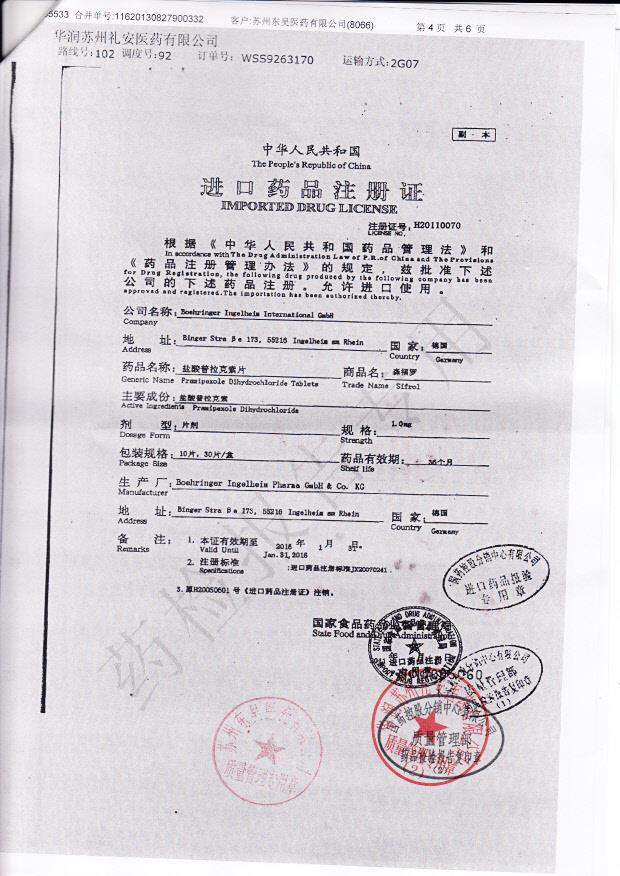 65533 合并单号:11620130827900332 客户:苏州东吴医药有限公司(8066) 第 4 页 共 6 页
华润苏州礼安医药有限公司
路线号:102 调度号:92 订单号: WSS9263170 运输方式:2G07
副 本
中华人民共和国
The People's Republic of China
进口药品注册证
IMPORTED DRUG LICENSE
注册证号: H20110070
LICENSE NO.
根据《中华人民共和国药品管理法》和
In accordance with The Drug Administration Law of P.R. of China and The Provisions
《药品注册管理办法》的规定，兹批准下述
for Drug Registration, the following drug produced by the following company has been
公司的下述药品注册。允许进口使用。
approved and registered. The importation has been authorized thereby.
公司名称: Boehringer Ingelheim International GmbH
Company
地 址: Binger Stra βe 173, 55216 Ingelheim am Rhein 国 家: 德国
Address Country Germany
药品名称: 盐酸普拉克索片 商品名: 森福罗
Generic Name Pramipexole Dihydrochloride Tablets Trade Name Sifrol
主要成份: 盐酸普拉克索
Active Ingredients Pramipexole Dihydrochloride
剂 型: 片剂 规 格: 1.0mg
Dosage Form Strength
包装规格: 10片, 30片/盒 药品有效期: 36个月
Package Size Shelf life
生 产 厂: Boehringer Ingelheim Pharma GmbH & Co. KG
Manufacturer
地 址: Binger Stra βe 173, 55216 Ingelheim am Rhein 国 家: 德国
Address Country Germany
备 注: 1. 本证有效期至 2016 年 1 月 31.
Remarks Valid Until Jan.31,2016
2. 注册标准 :进口药品注册标准JX20070241.
Specifications
3.原H20050601 号《进口药品注册证》注销。
国药控股分销中心有限公司
进口药品报验
专用章
国家食品药品监督管理局
State Food and Drug Administration
进口药品注册
国药控股分销中心有限公司
质量管理部
药品检验报告复印章
苏州东吴医药有限公司
质量管理专用章
药检报告专用